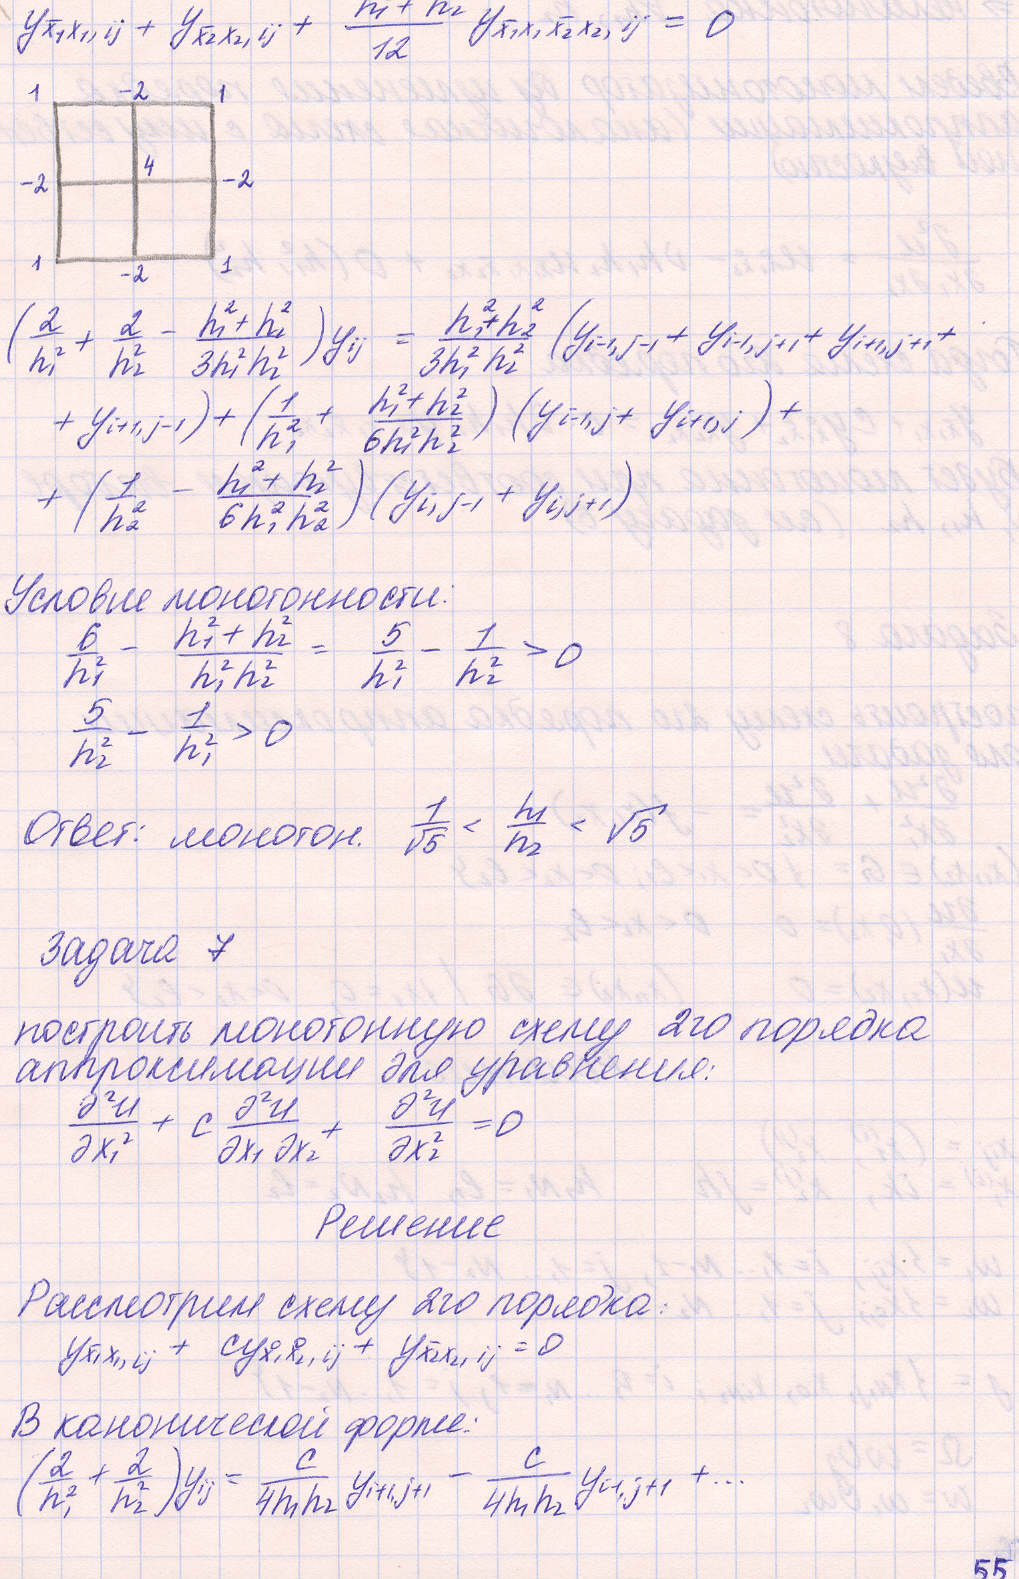 y_{x̄₁x₁,ij} + y_{x̄₂x₂,ij} + (h₁ + h₂)/12 y_{x̄₁x₁x̄₂x₂,ij} = 0
1 -2 1
-2 4 -2
1 -2 1
(2/h₁² + 2/h₂² - (h₁²+h₂²)/(3h₁²h₂²)) y_{ij} = (h₁²+h₂²)/(3h₁²h₂²) (y_{i-1,j-1} + y_{i-1,j+1} + y_{i+1,j+1} +
+ y_{i+1,j-1}) + (1/h₁² + (h₁²+h₂²)/(6h₁²h₂²)) (y_{i-1,j} + y_{i+1,j}) +
+ (1/h₂² - (h₁²+h₂²)/(6h₁²h₂²)) (y_{i,j-1} + y_{i,j+1})
Условие монотонности:
6/h₁² - (h₁²+h₂²)/(h₁²h₂²) = 5/h₁² - 1/h₂² > 0
5/h₂² - 1/h₁² > 0
Ответ: монотон. 1/√5 < h₁/h₂ < √5
Задача 7
построить монотонную схему 2го порядка
аппроксимации для уравнения:
∂²u/∂x₁² + c ∂²u/∂x₁∂x₂ + ∂²u/∂x₂² = 0
Решение
Рассмотрим схему 2го порядка:
y_{x̄₁x₁,ij} + cy_{x̊₁x̊₂,ij} + y_{x̄₂x₂,ij} = 0
В канонической форме:
(2/h₁² + 2/h₂²) y_{ij} = c/(4h₁h₂) y_{i+1,j+1} - c/(4h₁h₂) y_{i-1,j+1} + ...
55